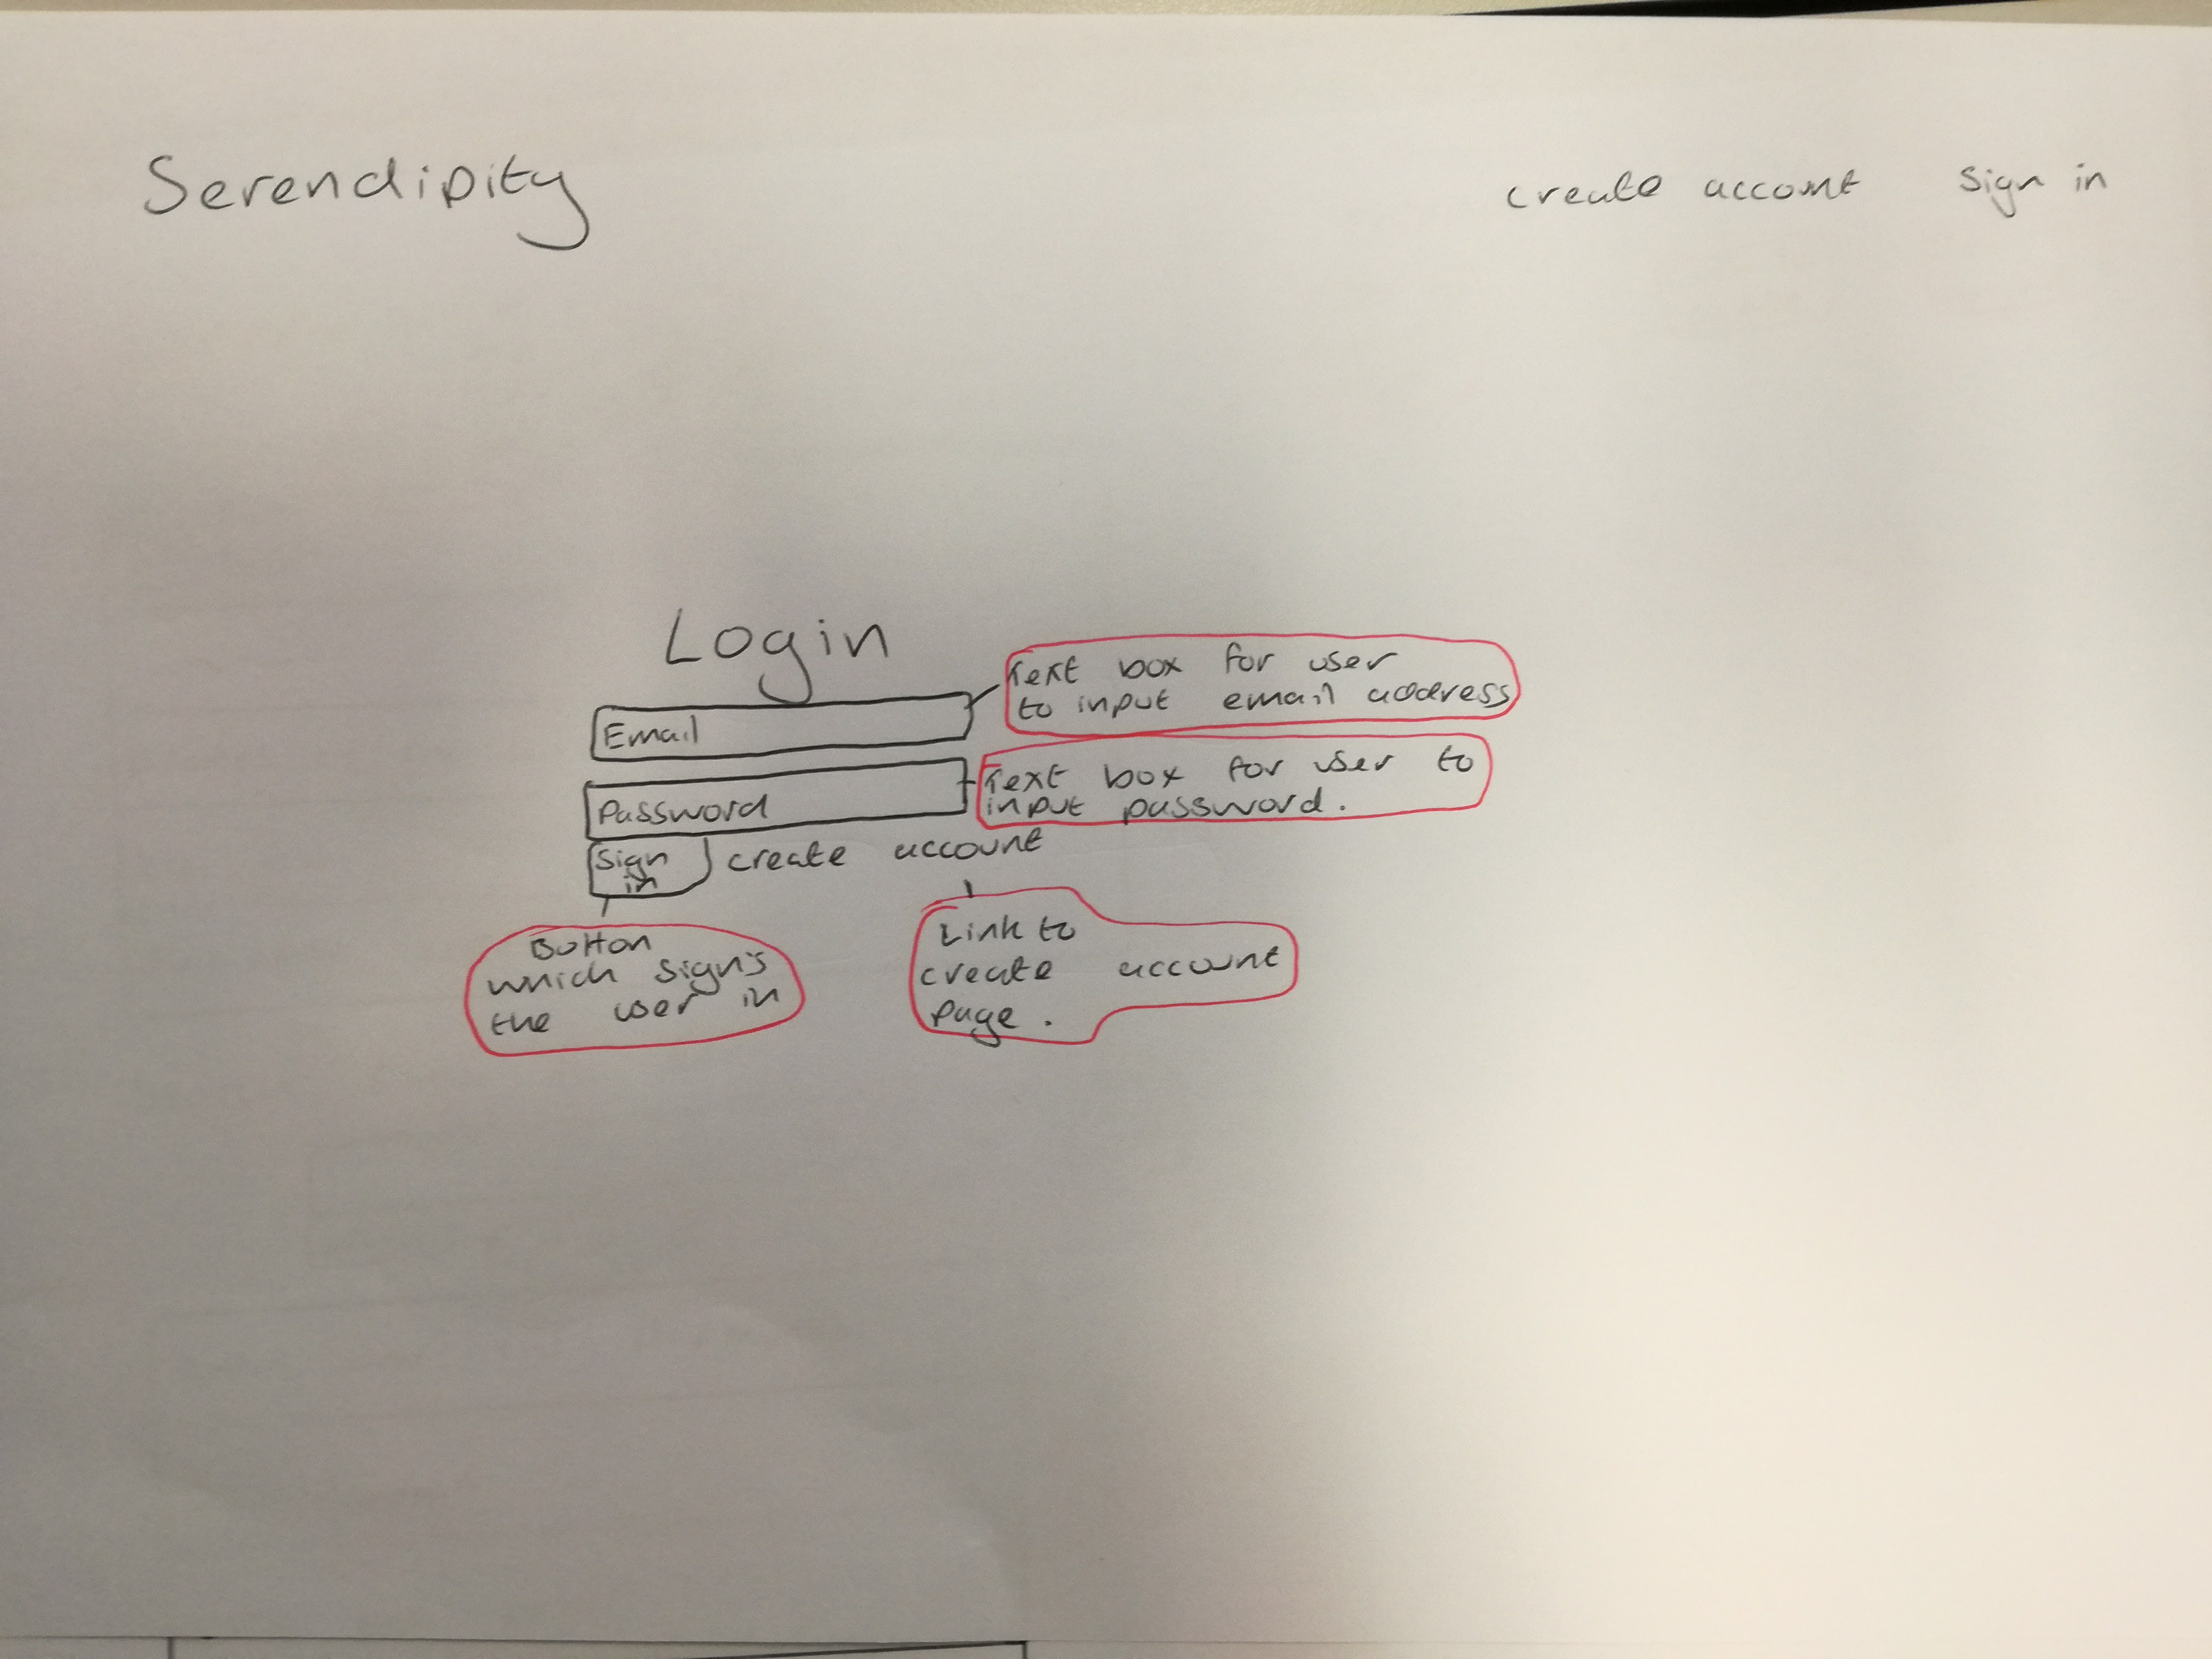 Serendipity
create account
Sign in
Login
Text box for user
to input email address
Email
Text box for user to
input password.
Password
Sign
in
create account
Button
which sign's
the user in
Link to
create account
page.